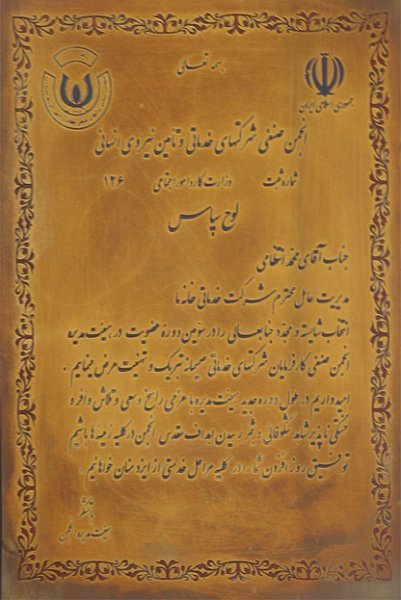 بسمه تعالی
جمهوری اسلامی ایران
انجمن صنفی شرکتهای خدماتی و تامین نیروی انسانی
شماره ثبت وزارت کار و امور اجتماعی ۱۲۶
لوح سپاس
جناب آقای محمد انتظامی
مدیریت عامل محترم شرکت خدماتی خانه ما
انتخاب شایسته و مجدد جنابعالی را در سومین دوره عضویت در هیئت مدیره
انجمن صنفی کارفرمایان شرکتهای خدماتی صمیمانه تبریک و تهنیت عرض مینمایم .
امیدواریم در طول دوره جدید هیئت مدیره با عزمی راسخ و سعی و تلاش وافر و
خستگی ناپذیر شاهد شکوفائی و ثمر رسیدن اهداف مقدس انجمن در کلیه زمینه ها باشیم
توفیق روز افزون شما را در کلیه مراحل خدمتی از ایزد منان خواهانیم .
با تشکر
هیئت مدیره انجمن